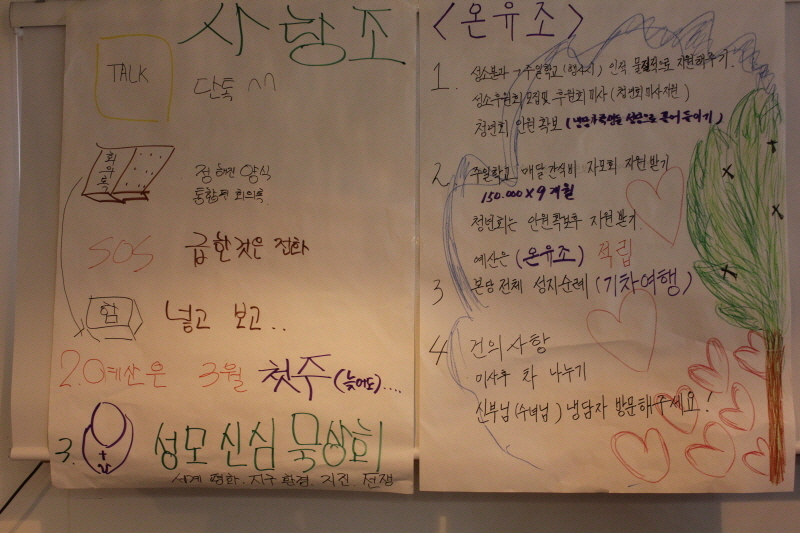 사랑조
TALK
단톡 ^^
회의록
정해진 양식
통합된 회의록
SOS 급한것은 전화
함 넣고 보고..
2.예산은 3월 첫주 (늦어도)....
3. 성모신심 묵상회
세계 평화. 지구 환경. 지진. 전쟁
<온유조>
1. 성소분과 → 주일학교(행사시) 인적 물질적으로 지원해주기.
성소후원회 모집및 후원회미사 (청년회미사지원)
청년회 인원확보 (냉담가족을 선물으로 끌어들이기)
2 주일학교 매달 간식비 자모회 지원받기
150.000×9개월
청년회는 인원확보후 지원받기
예산은 (온유조) 적립
3 본당전체 성지순례 (기차여행)
4 건의사항
미사후 차 나누기
신부님(수녀님) 냉담자 방문해주세요!